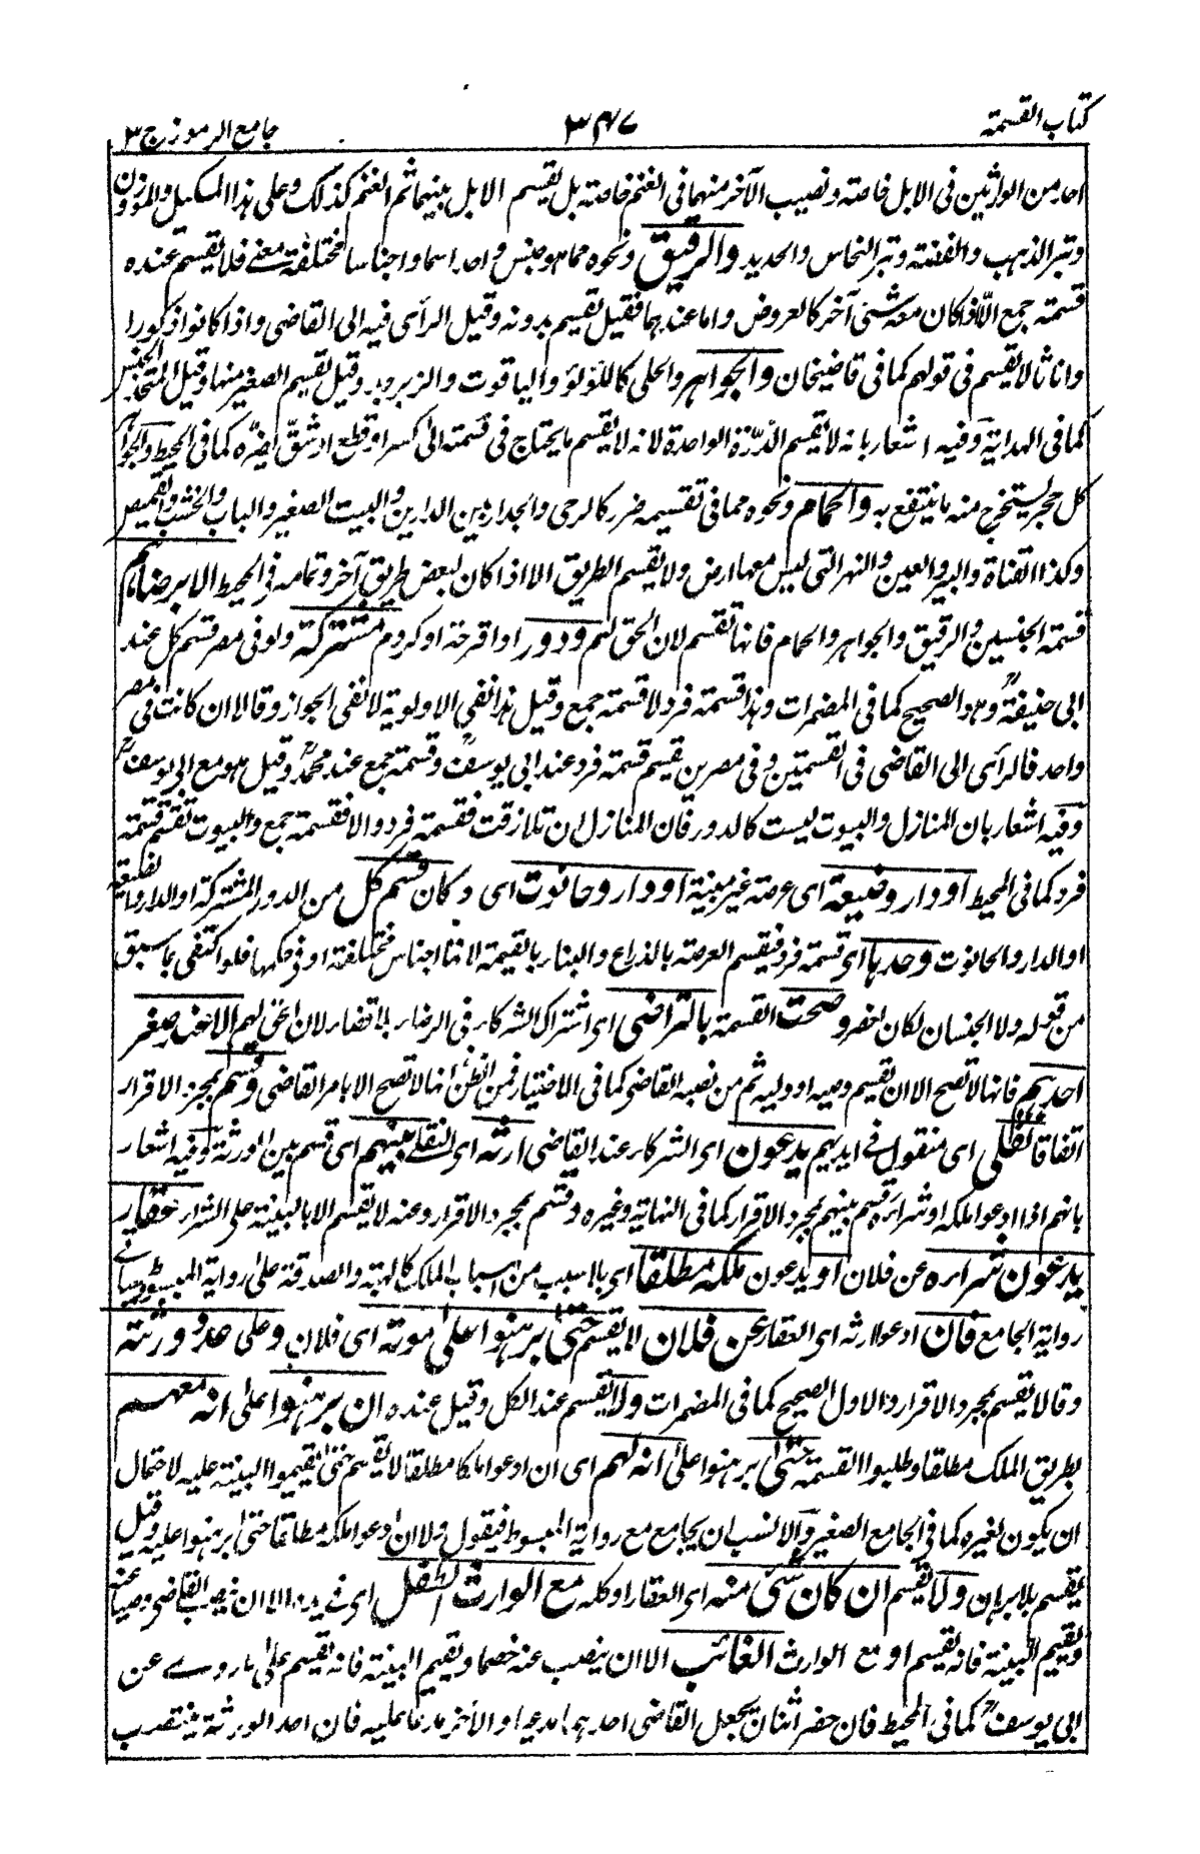 كتاب القسمة ٣٤٧ جامع الرموز ج ٣
احد من الوارثين فى الابل خاصة ونصيب الآخر منهما فى الغنم خاصة بل يقسم الابل بينهما ثم الغنم كذلك وعلى هذا المكيل والموزون
وتبر الذهب والفضة وتبر النحاس والحديد والرقيق ونحوه مما هو جنس واحد اسما واجناسا مختلفة معنى فلا يقسم عنده
قسمة جمع الا اذا كان معه شئ آخر كالعروض واما عندهما فقيل تقسيم بدونه وقيل الرأى فيه الى القاضى واذا كانوا ذكورا
واناثا لا يقسم فى قولهم كما فى قاضيخان والجواهر والحلى كاللؤلؤ والياقوت والزبرجد وقيل تقسيم الصغير منها وقيل المتحد الجنس
كما فى الهداية وفيه اشعار بانه لا تقسم الدرة الواحدة لانه لا يقسم ما يحتاج فى قسمته الى كسر او قطع او شق يضره كما فى المحيط والجواهر
كل حجر يستخرج منه ما ينتفع به والحمام ونحوه مما فى تقسيمه ضرر كالرحى والجدار بين الدارين والبيت الصغير والباب والخشب والقميص
وكذا القناة والبير والعين والنهر التى ليس معها ارض ولا يقسم الطريق الا اذا كان لبعض طريق آخر وتمامه فى المحيط الا برضاهم
قسمة الجنسين والرقيق والجواهر والحمام فانها تقسم لان الحق لهم ودور او اقرحة او كروم مشتركة ولو فى مصر قسم كل عند
ابى حنيفة وهو الصحيح كما فى المضمرات وهذا قسمة فرد لا قسمة جمع وقيل هذا نفى الاولوية لا نفى الجواز وقالا ان كانت فى مصر
واحد فالرأى الى القاضى فى القسمتين وفى مصرين يقسم قسمة فرد عند ابى يوسف وقسمة جمع عند محمد وقيل هو مع ابى يوسف
وفيه اشعار بان المنازل والبيوت ليست كالدور فان المنازل ان تلازقت فقسمة فرد والا فقسمة جمع والبيوت تقسم قسمة
فرد كما فى المحيط او دار وضيعة اى عرصة غير مبنية او دار وحانوت اى دكان قسم كل من الدور المشتركة او الدار والضيعة
او الدار والحانوت وحدها اى قسمة فرد فيقسم العرصة بالذراع والبناء بالقيمة لانها اجناس مختلفة او فى حكمها فلو اكتفى بما سبق
من قوله ولا الجنسان لكان اخصر وصحت القسمة بالتراضى اى اشتراك الشركاء فى الرضاء بلا قضاء لان الحق لهم الا عند صغر
احدهم فانها لا تصح الا ان تقسيم وصيه او وليه ثم من نصبه القاضى كما فى الاختيار فمن الظن انها لا تصح الا بامر القاضى وقسم بمجرد الاقرار
اتفاقا نقلى اى منقول فى ايديهم يدعون اى الشركاء عند القاضى ارثه اى النقلى بينهم اى قسم بين الورثة وفيه اشعار
بانهم اذا ادعوا ملكه او شراءه قسم بينهم بمجرد الاقرار كما فى النهاية وغيره وقسم بمجرد الاقرار وعنه لا يقسم الا بالبينة على الشراء عقار
يدعون شراءه عن فلان او يدعون ملكه مطلقا اى بلا سبب من اسباب الملك كالهبة والصدقة على رواية المبسوط وسيأتى
رواية الجامع فان ادعوا ارثه اى العقار عن فلان لا يقسم حتى برهنوا على موته اى فلان وعلى عدد ورثته
وقالا يقسم بمجرد الاقرار والاول الصحيح كما فى المضمرات ولا يقسم عند الكل وقيل عنده ان برهنوا على انه معهم
بطريق الملك مطلقا وطلبوا القسمة حتى برهنوا على انه لهم اى ان ادعوا ملكا مطلقا لا يقسم حتى يقيموا البينة عليه لاحتمال
ان يكون لغيره كما فى الجامع الصغير والانسب ان يجامع مع رواية المبسوط فيقول ولا ان ادعوا ملكه مطلقا حتى برهنوا عليه وقيل
يقسم بلا برهان ولا يقسم ان كان شئ منه اى العقار او كله مع الوارث الطفل اى فى يده الا ان نصب القاضى وصيا عنه
ويقيم البينة فانه يقسم او مع الوارث الغائب الا ان ينصب عنه خصما ويقيم البينة فانه يقسم على ما روى عن
ابى يوسف كما فى المحيط فان حضر اثنان يجعل القاضى احدهما مدعيا والآخر مدعا عليه فان احد الورثة ينتصب